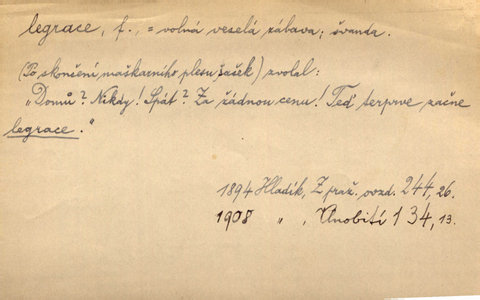 legrace, f., = volná veselá zábava; švanda.
(Po skončení maškarního plesu šašek) zvolal:
„Domů? Nikdy! Spát? Za žádnou cenu! Teď terprve začne
legrace."
1894 Hladík, Z praž. ovzd. 244, 26.
1908 „ , Vlnobití 134, 13.